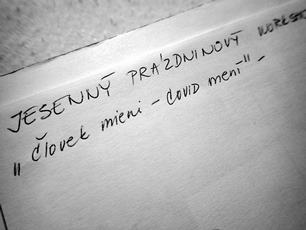 JESENNÝ PRÁZDNINOVÝ WORKSHOP
„Človek mieni - covid mení" -